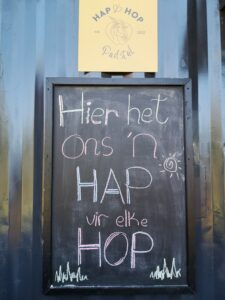 HAP HOP
Padstal
Hier het
ons 'n
HAP
vir elke
HOP